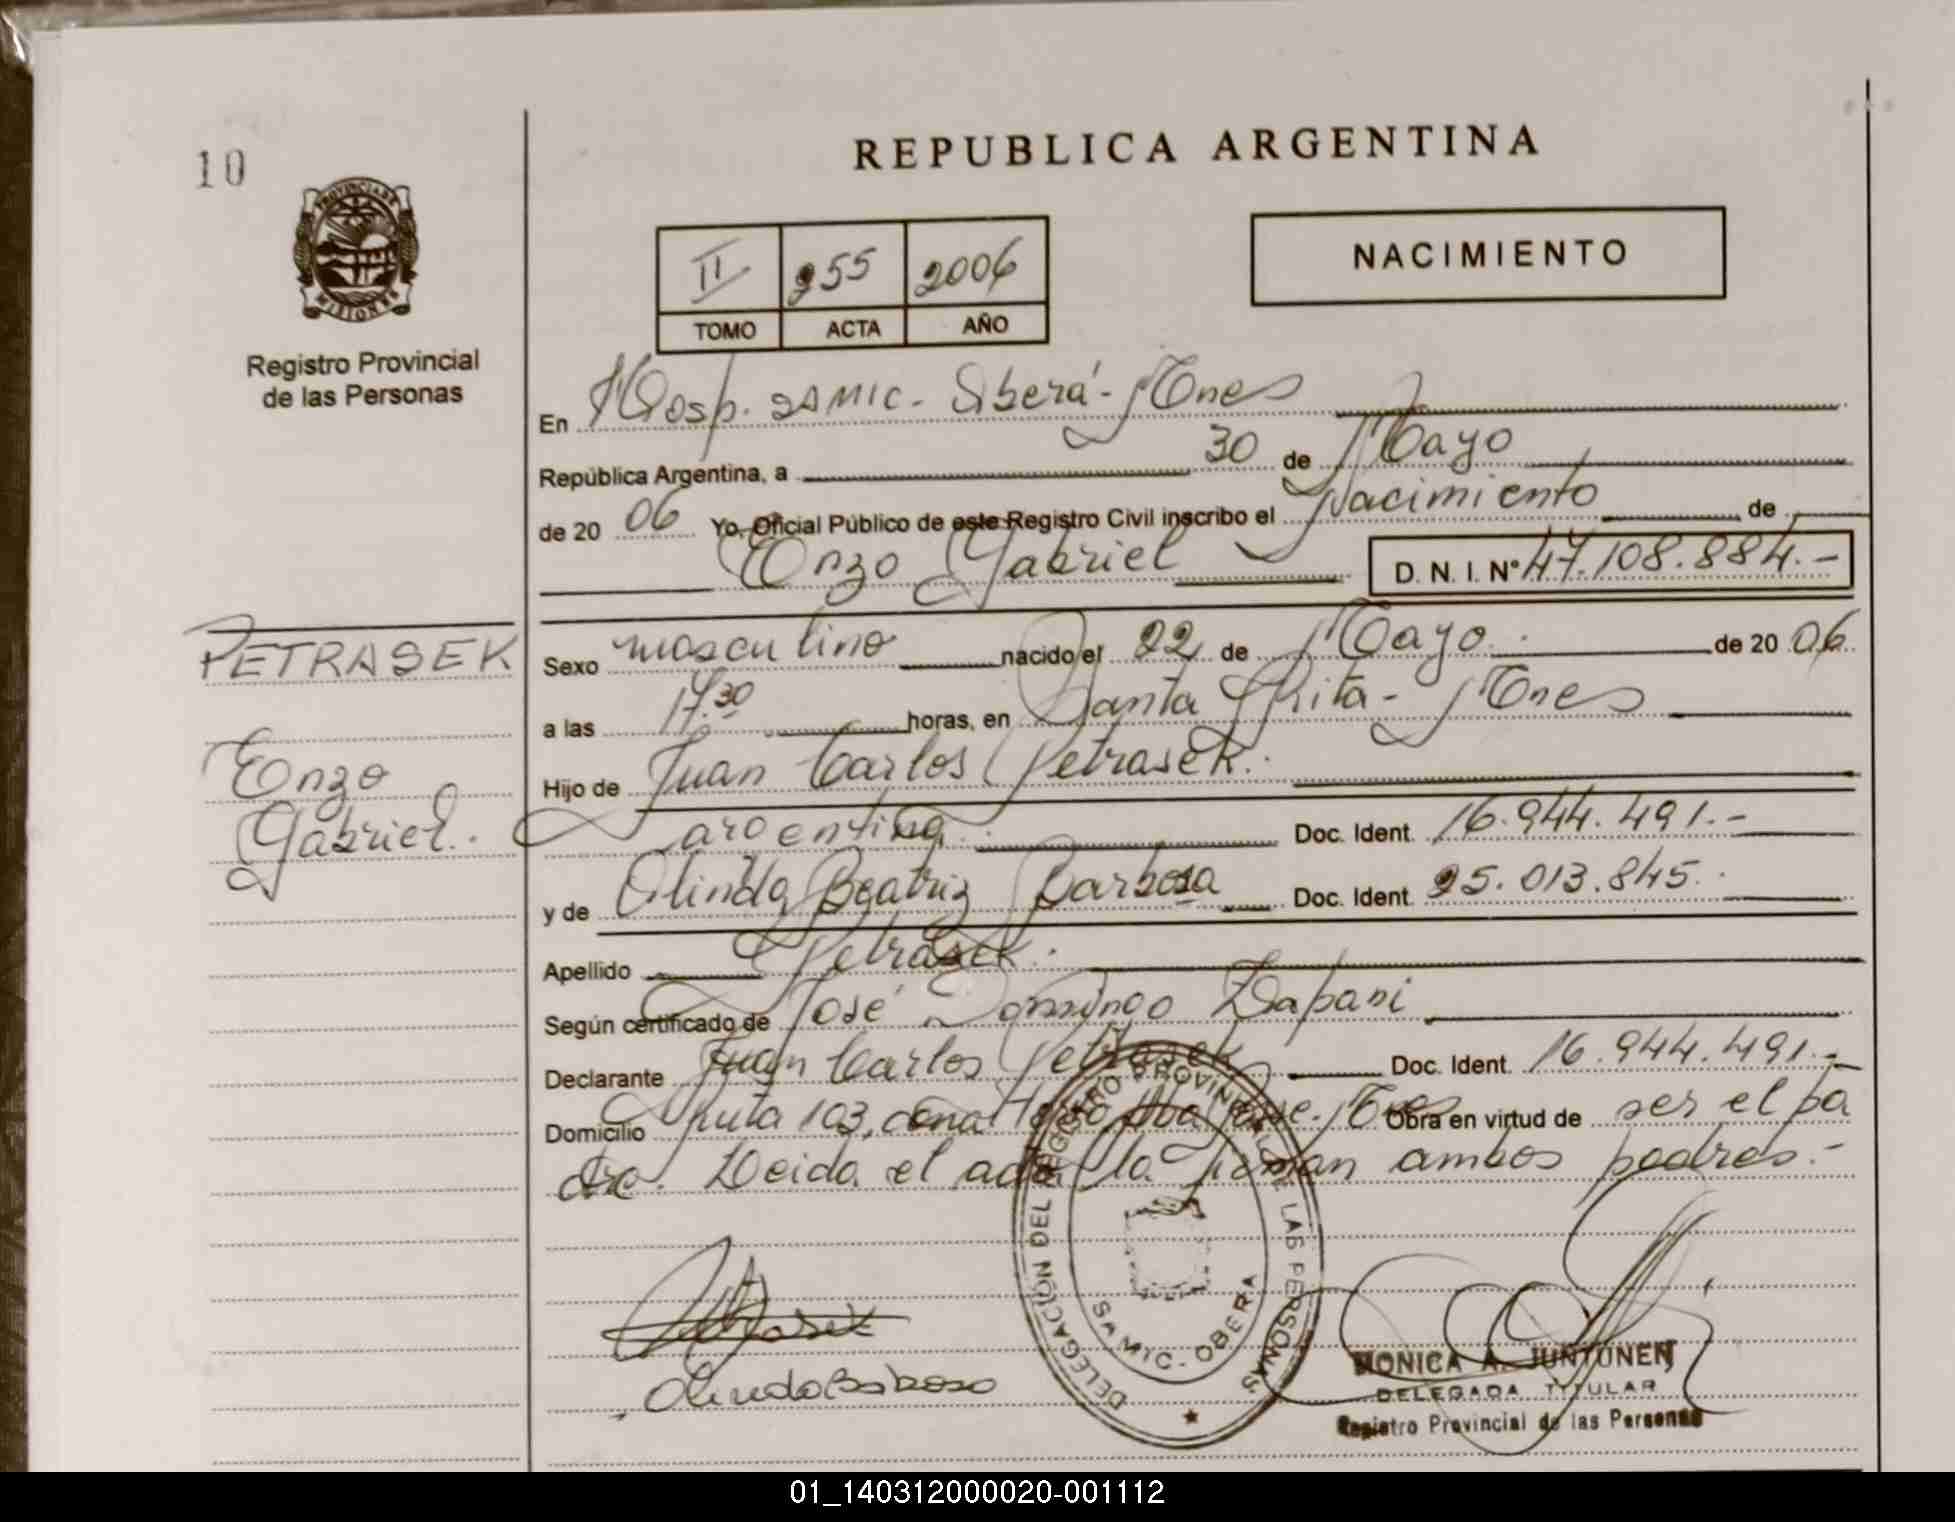 10
REPUBLICA ARGENTINA
PROVINCIA DE
MISIONES
Registro Provincial
de las Personas
II 255 2006
TOMO ACTA AÑO
NACIMIENTO
En Hosp. SAMIC - Oberá - Mnes
República Argentina, a 30 de Mayo
de 20 06 Yo, Oficial Público de este Registro Civil inscribo el Nacimiento de
Enzo Gabriel D. N. I. N° 47.108.884.-
PETRASEK
Enzo
Gabriel.
Sexo masculino nacido el 22 de Mayo de 20 06
a las 17.30 horas, en Santa Rita - Mnes
Hijo de Juan Carlos Petrasek.
argentina Doc. Ident. 16.944.491.-
y de Olinda Beatriz Barboza Doc. Ident. 25.013.845.
Apellido Petrasek.
Según certificado de José Domingo Zapani
Declarante Juan Carlos Petrasek Doc. Ident. 16.944.491.-
Domicilio Ruta 103, Mnes Obra en virtud de ser el pa
dre. Leida el acta la firman ambos padres.-
DELEGACIÓN DEL REGISTRO PROVINCIAL DE LAS PERSONAS
SAMIC - OBERA
MONICA A. JUNTUNEN
DELEGADA TITULAR
Registro Provincial de las Personas
01_140312000020-001112